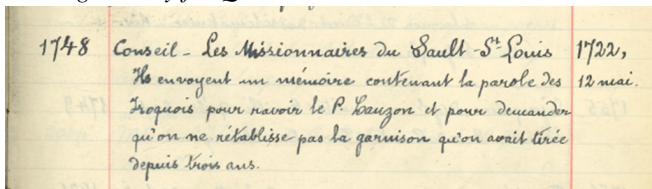 1748 Conseil - Les Missionnaires du Sault St. Louis 1722,
Ils envoyent un mémoire contenant la parole des 12 mai.
Iroquois pour ravoir le P. Lauzon et pour demander
qu'on ne rétablisse pas la garnison qu'on avait tirée
depuis trois ans.